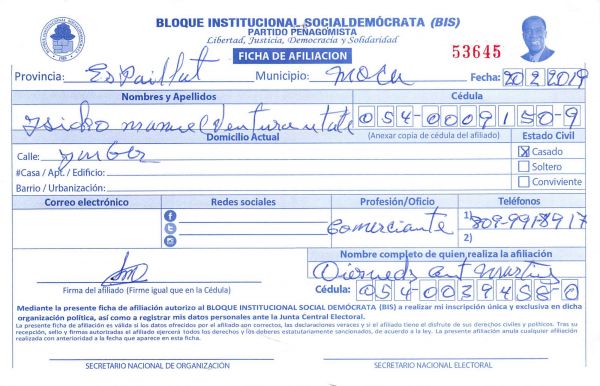 BLOQUE INSTITUCIONAL SOCIALDEMÓCRATA (BIS)
PARTIDO PEÑAGOMISTA
Libertad, Justicia, Democracia y Solidaridad
FICHA DE AFILIACION
53645
Provincia: Espaillat Municipio: Moca Fecha: 20 2 2019
Nombres y Apellidos Cédula
Isidro manuel Ventura 054-0009150-9
Domicilio Actual (Anexar copia de cédula del afiliado) Estado Civil
Calle: X Casado
#Casa / Apt. / Edificio: Soltero
Barrio / Urbanización: Conviviente
Correo electrónico Redes sociales Profesión/Oficio Teléfonos
Comerciante 1) 809-9918917
2)
Nombre completo de quien realiza la afiliación
Firma del afiliado (Firme igual que en la Cédula) Cédula: 054-0039458-0
Mediante la presente ficha de afiliación autorizo al BLOQUE INSTITUCIONAL SOCIAL DEMÓCRATA (BIS) a realizar mi inscripción única y exclusiva en dicha
organización política, así como a registrar mis datos personales ante la Junta Central Electoral.
La presente ficha de afiliación es válida si los datos ofrecidos por el afiliado son correctos, las declaraciones veraces y si el afiliado tiene el disfrute de sus derechos civiles y políticos. Tras su
recepción, sello y firmas autorizadas el afiliado ejercerá todos los derechos y los deberes estatutariamente sancionados, de acuerdo a la ley. La presente afiliación anula cualquier afiliación
realizada con anterioridad a la fecha que aparece en esta ficha.
SECRETARIO NACIONAL DE ORGANIZACIÓN SECRETARIO NACIONAL ELECTORAL